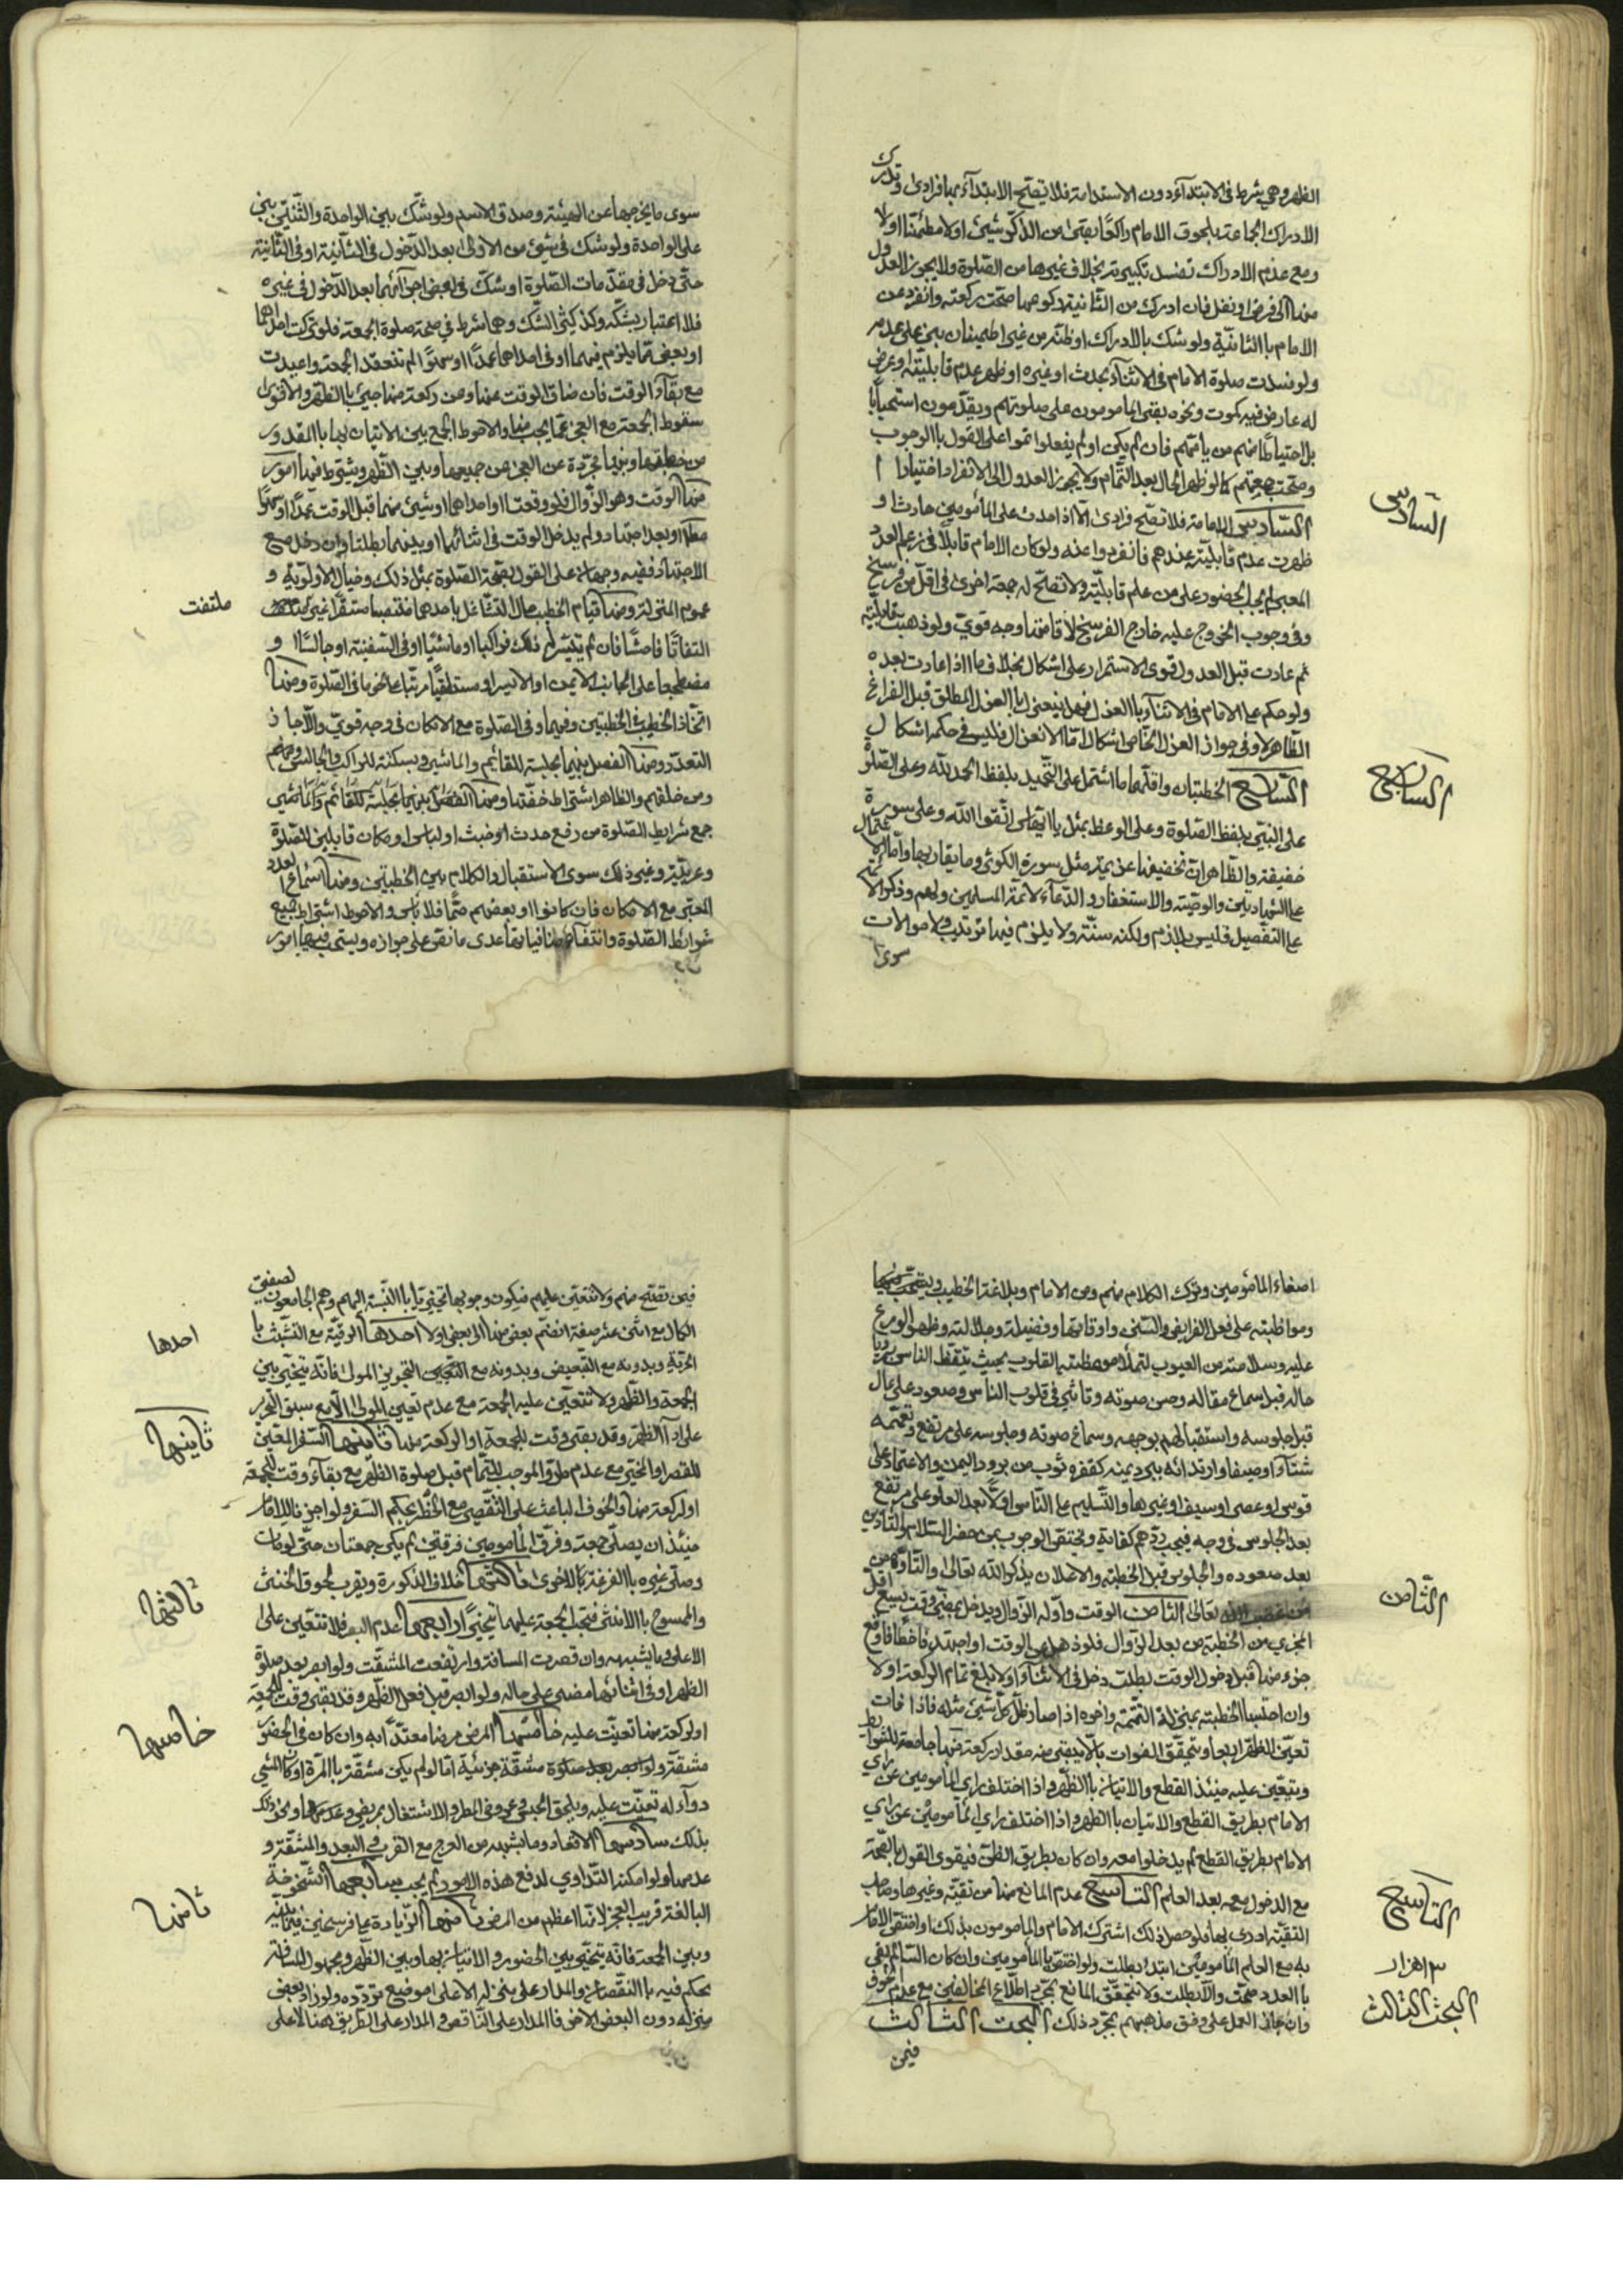 الظهر وهي شرط في الابتداء دون الاستدامة فلا تصح الابتداء بها فرادى وتدرك
الادراك الجماعة بلحوق الامام راكعا بقى من الذكر شيئ اولا مطمئنا اولا
ومع عدم الادراك تفسد تكبيرته بخلاف غيرها من الصلوة ولا يجوز العدول
منها الى فرض او نفل فان ادرك من الثانية ركوعها صحت ركعته وانفرد عن
الامام بالثانية ولو شك بالادراك او ظنه من غير اطمينان بنى على عدمه
ولو فسدت صلوة الامام في الاثناء بحدث او غيره او ظهر عدم قابليته او عرض
له عارض فيه كموت ونحوه بقى المامومون على صلوتهم ويقدمون استحبابا
بل احتياطا منهم من يأمهم فان لم يكن او لم يفعلوا اتموا على القول بالوجوب
وصحت جمعتهم كما لو ظهر الحال بعد التمام ولا يجوز العدول الى الانفراد اختيارا
السادس الامامة فلا تصح فرادى الا اذا حدث على المأمومين حادث او
ظهرت عدم قابليته عندهم فانفردوا عنه ولو كان الامام قابلا في زعم العدد
المعتبر لم يجب الحضور على من علم قابليته ولا تصح له جمعة اخرى في اقل من فرسخ
وفي وجوب الخروج عليه خارج الفرسخ لاقامتها وجه قوي ولو ذهبت قابليته
ثم عادت قبل العدول قوى الاستمرار على اشكال بخلاف ما اذا عادت بعده
ولو حكم على الامام في الاثناء بالعزل فهل ينعزل بالعزل المطلق قبل الفراغ
الظاهر لا وفي جواز العزل الخاص اشكال امّا الانعزال فليس في حكمه اشكال
السابع الخطبتان واقلهما ما اشتمل على التحميد بلفظ الحمد لله وعلى الصلوة
على النبي بلفظ الصلوة وعلى الوعظ بمثل يا ايها الناس اتقوا الله وعلى سورة
خفيفة والظاهر ان تخفيفها عزيمة مثل سورة الكوثر وما يقاربها واما الاشتمال
على الشهادتين والوصية والاستغفار والدعاء لائمة المسلمين ولهم وذكر الائمة
على التفصيل فليس بلازم ولكنه سنة ولا يلزم فيها ترتيب ولا موالات
سوى
السادس
السابع
سوى ما يخرجها عن الهيئة وصدق الاسم ولو شك بين الواحدة والثنتين بنى
على الواحدة ولو شك في شيئ من الاولى بعد الدخول في الثانية او في الثانية
حتى دخل في مقدمات الصلوة او شك في بعض اجزائهما بعد الدخول في غيره
فلا اعتبار بشكه وكذا كثير الشك وهما شرط في صحة صلوة الجمعة فلو تركت احداهما
او بعض مما يلزم فيهما او في احداهما عمدا او سهوا لم تنعقد الجمعة واعيدت
مع بقاء الوقت فان ضاق الوقت عنها وعن ركعة منها جيئ بالظهر والاقوى
سقوط الجمعة مع العجز عما يجب منها والاحوط الجمع بين الاتيان بها بالمقدور
من خطبتها وبها مجردة عن العجز من جميعها وبين الظهر ويشترط فيها امور
منها الوقت وهو الزوال فلو وقعتا او احداهما او شيئ منهما قبل الوقت عمدا او سهوا
او بعد اجتهاد ولم يدخل الوقت في اثنائهما او بينهما بطلتا وان دخل مع
الاجتهاد ففيه وجهان على القول بصحة الصلوة بمثل ذلك وخيال الاولوية و
عموم المنزلة ومنها قيام الخطيب حال التشاغل باحدهما منتصبا مستقرا غير ملتفت
التفاتا فاحشا فان لم يتيسر له ذلك فراكبا او ماشيا او في السفينة او جالسا او
مضطجعا على الجانب الايمن او الايسر او مستلقيا مرتبا على نحو ما في الصلوة ومنها
اتحاد الخطيب في الخطبتين وفيهما وفي الصلوة مع الامكان في وجه قوي والا جاز
التعدد ومنها الفصل بينهما بجلسة للقائم والماشي وبسكتة للراكب والجالس
ومن خلفهم والظاهر اشتراط خفتها ومنها الفصل بينهما بجلسة للقائم والماشي
جمع شرايط الصلوة من رفع حدث او خبث او لباس او مكان قابلين للصلوة
وعربية وغير ذلك سوى الاستقبال والكلام بين الخطبتين ومنها اسماع العدد
المعتبر مع الامكان فان كانوا او بعضهم صما فلا بأس والاحوط اشتراط جميع
شرائط الصلوة وانتفاء منافياتها عدى ما نقر على جوازه ويستحب فيهما امور
ملتفت
اصغاء المأمومين وترك الكلام منهم ومن الامام وبلاغة الخطيب
ومواظبته على فعل الفرايض والسنن واوقاتها وفضيلته وجلالته وظهور الورع
عليه وسلامته من العيوب لتملأ موعظته القلوب بحيث يتعظ الناس برؤيا
حاله قبل سماع مقاله وحسن صوته وتأثيره في قلوب الناس وصعود على عال
قبل جلوسه واستقبالهم بوجهه وسماع صوته وجلوسه على مرتفع وتعممه
شتاء او صيفا وارتدائه ببرد يمنية كغفره ثوب من برود اليمن والاعتماد على
قوس او عصى او سيف او غيرها والتسليم على الناس اولا بعد العلو على مرتفع
بعد الجلوس في وجه فيجب ردهم كفاية ويختص الوجوب بمن حضر السلام والتأذين
بعد صعوده والجلوس قبل الخطبة والاعلان بذكر الله تعالى والتأوه من
من غضب الله تعالى الثامن الوقت واوله الزوال ويدخل بمضي وقت يسع اقل
المجزي من الخطبة من بعد الزوال فلو ذهل عن الوقت او اجتهد فاخطأ فاوقع
جزء منها قبل دخول الوقت بطلت دخل في الاثناء او لا بلغ تمام الركعة او لا
وان احتسبنا الخطبة بمنزلة التتمة واخره اذا صار ظل كل شيئ مثله فاذا فات
تعين الظهر اربعا ويتحقق الفوات بالا يبقى منه مقدار ركعة منها جامعة للشرايط
ويتعين عليه حينئذ القطع والاتيان بالظهر واذا اختلف رأي المأمومين عن رأي
الامام بطريق القطع والاتيان بالظهر واذا اختلف رأي المأمومين عن رأي
الامام بطريق القطع لم يدخلوا معه وان كان بطريق الظن فيقوى القول بالصحة
مع الدخول معه بعد العلم التاسع عدم المانع منها من تقية وغيرها وصاحب
التقية ادرى بها ولو حصل ذلك اشترك الامام والمأمومون بذلك او اختص الامام
به مع العلم المأمومين ابتداء بطلت ولو اختص بالمأمومين وان كان السالم يفي
بالعدد صحت والا بطلت ولا يتحقق المانع بمجرد اطلاع المخالفين مع عدم الخوف
وان جاز العمل على وفق مذهبهم بمجرد ذلك البحث الثالث
فيمن
الثامن
التاسع
البحث الثالث
فيمن تفتح منهم ولا تتعين عليهم فيكون وجوبها تخييريا بالنسبة اليهم وهم الجامعون لصفتي
الكمال مع اثنى عشر صفة انضم بعض منها الى بعض او لا احدها الرقية مع التشبث با
الحرية وبدونه مع التبعيض وبدونه مع التخيير من المولى فانه يتخير بين
الجمعة والظهر ولا تتعين عليه الجمعة مع عدم تعيين المولى الا مع سبق العزم
على اداء الظهر وقد بقى وقت للجمعة او لركعة منها ثانيها السفر المعين
للقصر او المخير مع عدم طرو الموجب للتمام قبل صلوة الظهر مع بقاء وقت للجمعة
او لركعة منها والخوف الباعث على التقصير مع الحظر بحكم السفر ولو اجزنا للامام
حينئذ ان يصلي جمعة وفرق المأمومين فرقتين لم يكن جمعتان حتى لو مات
وصلى غيره بالفرقة كالاخرى ثالثها خلاف الذكورة ويقرب لحوق الخنثى
والممسوح بالانثى فتجب الجمعة عليهما تخييرا رابعها عدم البصر فلا تتعين على
الاعمى وما يشبهه وان قصرت المسافة وارتفعت المشقة ولو ابصر بعد صلوة
الظهر او في اثنائها مضى على حاله ولو ابصر قبل فعل الظهر وقد بقى وقت للجمعة
او لركعة منها تعينت عليه خامسها المرض مرضا معتدا به وان كان في الحضور
مشقة جزئية امّا لو لم يكن مشقة بالمرة او كان المشي
دواء له تعينت عليه ويلحق الحبس وعروض المطر والاشتغال بمريض ونحو ذلك
بذلك سادسها الاقعاد وما يشبهه من العرج مع القرب والبعد والمشقة و
عدمها ولو امكنه التداوي لدفع هذه الامور لم يجب سابعها الشيخوخة
البالغة قريب العجز لانها اعظم من المرض ثامنها الزيادة على فرسخين فيما بينه
وبين الجمعة فانه يتخير بين الحضور والاتيان بها وبين الظهر ومجهول المسافة
يحكم فيه بالنقصان والمدار على منزله لا على موضع تردده ولو زاد بعض
منزله دون البعض الاخر فالمدار على الناقص والمدار على الطريق هنا لا على
احدها
ثانيها
ثالثها
خامسها
ثامنها